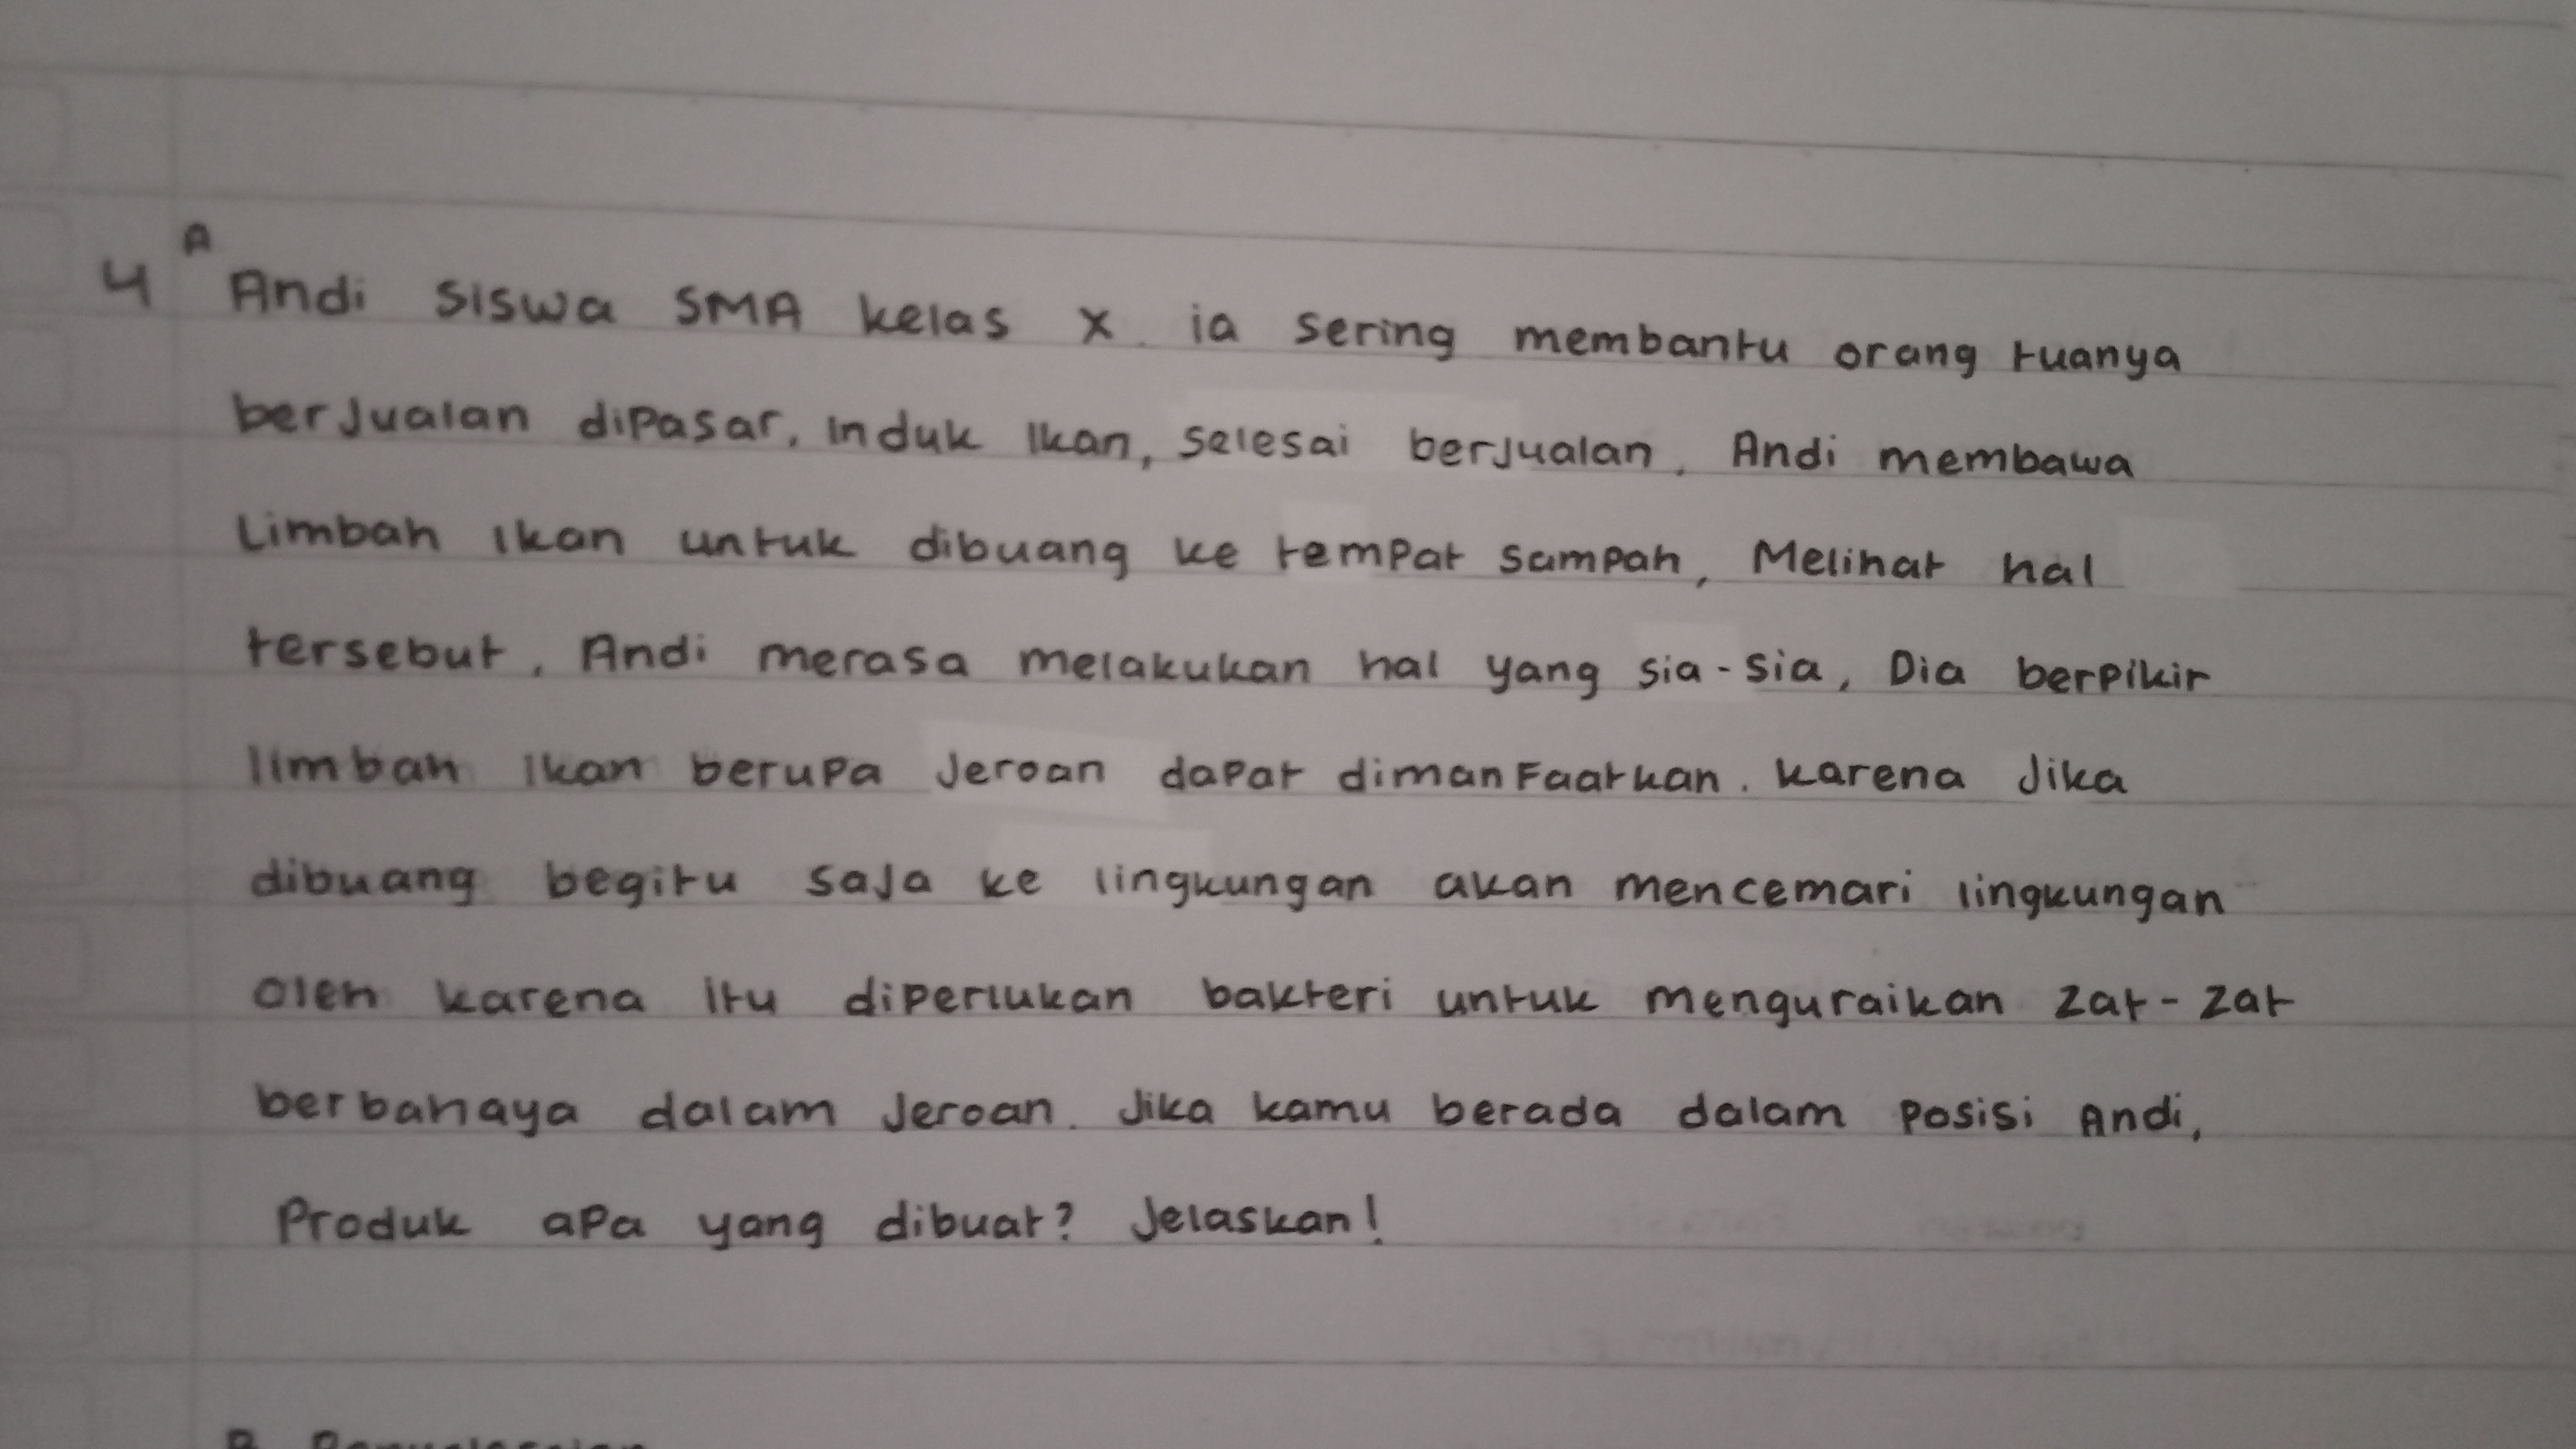 4 A Andi siswa SMA kelas X. ia sering membantu orang tuanya
berjualan dipasar. Induk Ikan, selesai berjualan, Andi membawa
Limbah ikan untuk dibuang ke tempat sampah, Melihat hal
tersebut, Andi merasa melakukan hal yang sia-sia, Dia berpikir
limbah ikan berupa Jeroan dapat dimanfaatkan. karena Jika
dibuang begitu saja ke lingkungan akan mencemari lingkungan
oleh karena itu diperlukan bakteri untuk menguraikan zat-zat
berbahaya dalam Jeroan. Jika kamu berada dalam posisi Andi,
Produk apa yang dibuat? Jelaskan!